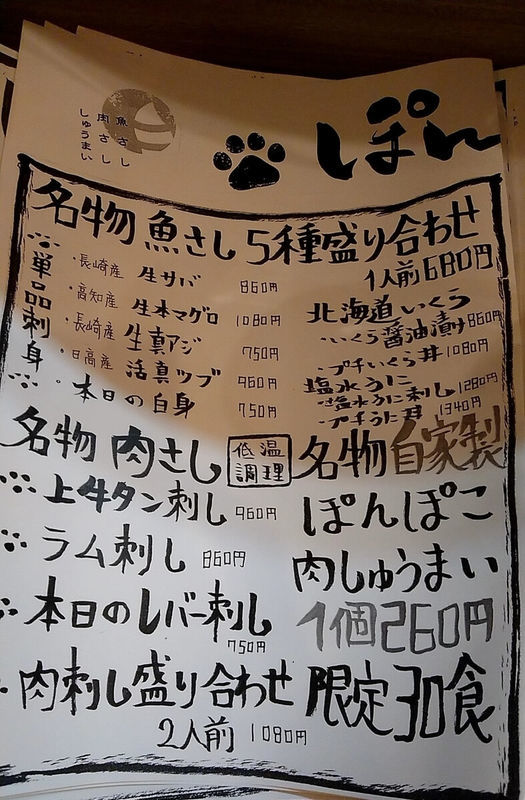 魚さし
肉さし
しゅうまい
ぽん
名物 魚さし 5種盛り合わせ
1人前680円
単品刺身
・長崎産 生サバ 860円
・高知産 生本マグロ 1080円
・長崎産 生真アジ 750円
・日高産 活真ツブ 960円
・本日の白身 750円
北海道いくら
・いくら醤油漬け 860円
・プチいくら丼 1080円
塩水うに
・塩水うに刺し 1280円
・プチうに丼 1340円
名物 肉さし
低温調理
上牛タン刺し 960円
ラム刺し 860円
本日のレバー刺し
750円
肉刺し盛り合わせ
2人前 1080円
名物自家製
ぽんぽこ
肉しゅうまい
1個260円
限定30食